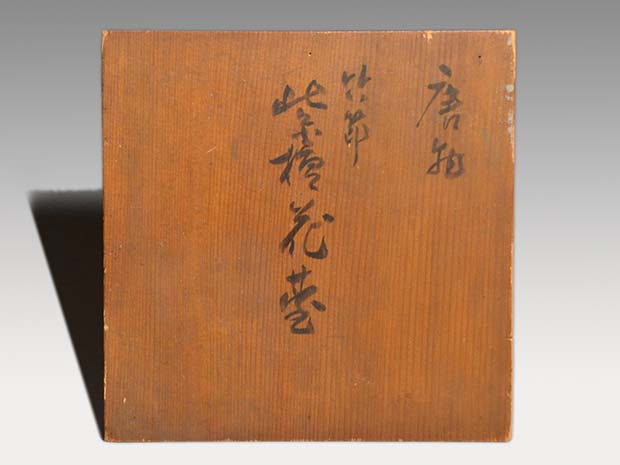 唐物
竹節
紫檀花臺